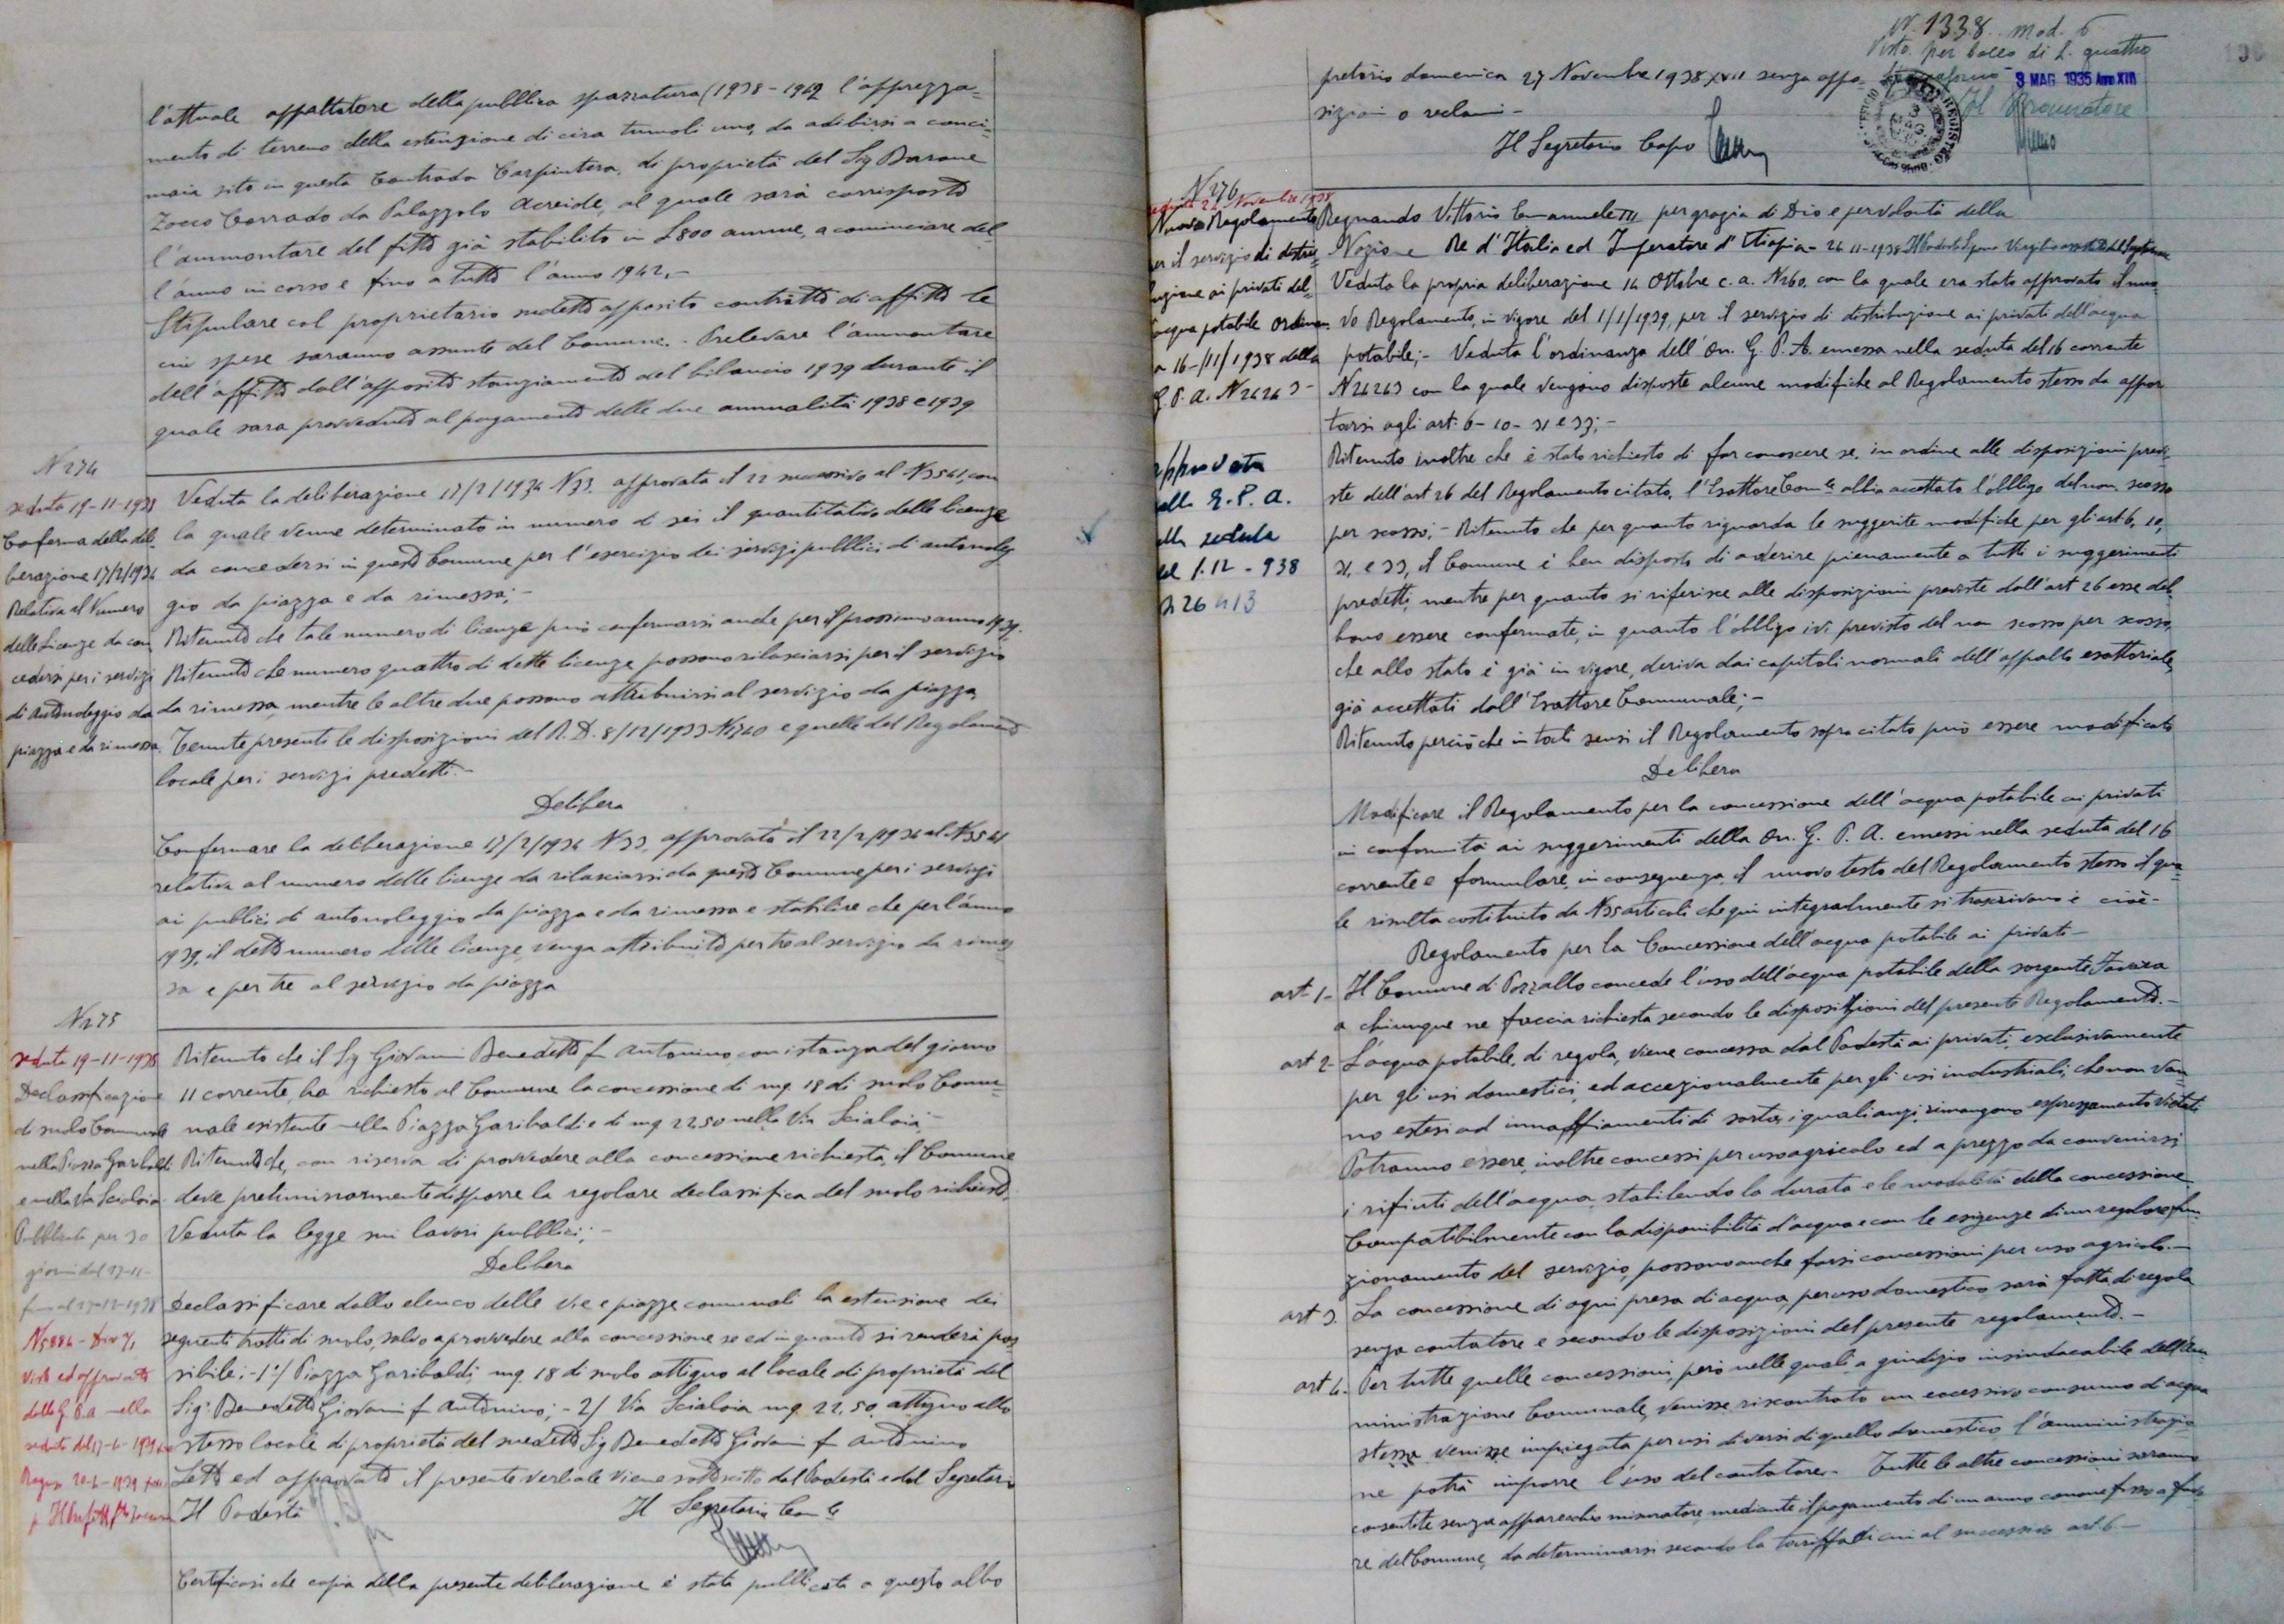 l'attuale appaltatore della pubblica spazzatura (1938-1942 l'apprezza=
mento di terreno della estenzione di circa tumoli uno, da adibirsi a conci=
maia sito in questa Contrada Carpintera, di proprietà del Sig Barone
Zocco Corrado da Palazzolo Acreide, al quale sarà corrisposto
l'ammontare del fitto già stabilito in £ 800 annue, a cominciare del=
l'anno in corso e fino a tutto l'anno 1942.-
Stipulare col proprietario sudetto apposito contratto di affitto le
cui spese saranno assunte del Comune.- Prelevare l'ammontare
dell'affitto dall'apposito stanziamento del bilancio 1939 durante il
quale sara provveduto al pagamento delle due annualità 1938 e 1939
N 274
seduta 19-11-1938
Conferma della deli=
berazione 17/2/1934
Relativa al Numero
delle Licenze da con
cedersi per i servizi
di autonoleggio da
piazza e da rimessa.
Veduta la deliberazione 17/2/1934 N 33. approvata il 22 successivo al N 3541, con
la quale venne determinato in numero di sei il quantitativo delle licenze
da concedersi in questo Comune per l'esercizio dei servizi pubblici di autonoleg
gio da piazza e da rimessa;-
Ritenuto che tale numero di licenze può confermarsi anche per il prossimo anno 1939.
Ritenuto che numero quattro di dette licenze possono rilasciarsi per il servizio
da rimessa, mentre le altre due possono attribuirsi al servizio da piazza,
Tenute presenti le disposizioni del R. D. 8/12/1933 N 1740 e quelle del Regolamento
locale per i servizi predetti.-
Delibera
Confermare la deliberazione 17/2/1934 N 33, approvata il 22/2/1934 al N 3541
relativa al numero delle licenze da rilasciarsi da questo Comune per i servizi
ai publici di autonoleggio da piazza e da rimessa e stabilire che per l'anno
1939, il detto numero delle licenze, venga attribuito per tre al servizio da rimes
sa e per tre al servizio da piazza
N 275
seduta 19-11-1938
Declassificazione
di suolo Comunale
nella Piazza Garibaldi
e nella Via Scialoia
Pubblicata per 30
giorni dal 27-11-
fino al 27-12-1938
N 5886 - Div 7,
Visto ed approvato
dalla G. P. A nella
seduta del 17-6-1939
Ragusa 20-6-1939
p Il Prefetto
Ritenuto che il Sig Giovanni Benedetto fu Antonino, con istanza del giorno
11 corrente, ha richiesto al Comune la concessione di mq. 18 di suolo Comu=
nale esistente nella Piazza Garibaldi e di mq 22.50 nella Via Scialoia;-
Ritenuto che, con riserva di provvedere alla concessione richiesta, il Comune
deve preliminarmente disporre la regolare declassifica del suolo richiesto.
Veduta la legge sui lavori pubblici;-
Delibera
Declassificare dallo elenco delle vie e piazze comunali la estensione dei
seguenti tratti di suolo, salvo a provvedere alla concessione se ed in quanto si renderà pos
sibile;- 1°/ Piazza Garibaldi mq. 18 di suolo attiguo al locale di proprietà del
Sig: Benedetto Giovanni fu Antonino;- 2/ Via Scialoia mq 22.50. attiguo allo
stesso locale di proprietà del suedetto Sig Benedetto Giovanni fu Antonino
Letto ed approvato il presente verbale viene sottoscritto dal Podestà e dal Segretario
Il Podestà
Il Segretario Com le
Certificasi che copia della presente deliberazione è stata pubblicata a questo albo
N. 1338. mod. 6
Visto per bollo di L. quattro
3 MAG 1935 Anno XVII
Il Procuratore
pretorio domenica 27 Novembre 1938 XVII senza oppo=
sizioni o reclami-
Il Segretario Capo
N 276
seduta 24 Novembre 1938
Nuovo Regolamento
per il servizio di distri=
buzione ai privati del=
l'acqua potabile Ordinan=
za 16-/11/1938 della
G. P. A. N 24263-
approvata
dalla G. P. A.
nella seduta
del 1.12-938
N 26413
Regnando Vittorio Emanuele III per grazia di Dio e per volontà della
Nazione Re d'Italia ed Imperatore d'Etiopia- 24-11-1938 Il Podestà
Veduta la propria deliberazione 14 Ottobre c. a. N 260. con la quale era stato approvato il nuo=
vo Regolamento, in vigore del 1/1/1939, per il servizio di distribuzione ai privati dell'acqua
potabile;- Veduta l'ordinanza dell'On. G. P. A. emessa nella seduta del 16 corrente
N 24263 con la quale vengono disposte alcune modifiche al Regolamento stesso da appor
tarsi agli art: 6-10-31 e 33;-
Ritenuto inoltre che è stato richiesto di far conoscere se, in ordine alle disposizioni previ=
ste dell'art 26 del Regolamento citato, l'Esattore Com le abbia accettato l'obbligo del non scosso
per scosso;- Ritenuto che per quanto riguarda le suggerite modifiche per gli art 6, 10,
31, e 33, il Comune è ben disposto di aderire pienamente a tutti i suggerimenti
predetti, mentre per quanto si riferisce alle disposizioni previste dall'art 26 esse deb=
bono essere confermate, in quanto l'obbligo ivi previsto del non scosso per scosso,
che allo stato è già in vigore, deriva dai capitoli normali dell'appalto esattoriale,
già accettati dall'Esattore Comunale;-
Ritenuto perciò che in tali sensi il Regolamento sopra citato può essere modificato
Delibera
Modificare il Regolamento per la concessione dell'acqua potabile ai privati
in conformità ai suggerimenti della On. G. P. A. emessi nella seduta del 16
corrente e formulare, in conseguenza, il nuovo testo del Regolamento stesso il qua=
le risulta costituito da N 35 articoli che qui integralmente si trascrivono e cioè-
Regolamento per la Concessione dell'acqua potabile ai privati-
art- 1- Il Comune di Pozzallo concede l'uso dell'acqua potabile della sorgente Favara
a chiunque ne faccia richiesta secondo le disposizioni del presente Regolamento.-
art 2- L'acqua potabile, di regola, viene concessa dal Podestà ai privati, esclusivamente
per gli usi domestici, ed accezionalmente per gli usi industriali, che non van=
no estesi ad innaffiamenti di sorta, i quali anzi, rimangono espressamente vietati
Potranno essere, inoltre concessi per uso agricolo ed a prezzo da convenirsi
i rifiuti dell'acqua, stabilendo la durata e le modalità della concessione
Compatibilmente con la disponibilità d'acqua e con le esigenze di un regolare fun=
zionamento del servizio, possono anche farsi concessioni per uso agricolo.-
art 3. La concessione di ogni presa di acqua, per uso domestico, sarà fatta di regola
senza contatore e secondo le disposizioni del presente regolamento.-
art 4- Per tutte quelle concessioni, però nelle quali, a giudizio insindacabile dell'Am
ministrazione Comunale, venisse riscontrato un eccessivo consumo d'acqua
stessa venisse impiegata per usi diversi di quello domestico l'amministrazio=
ne potrà imporre l'uso del contatore.- Tutte le altre concessioni saranno
consentite senza apparecchio misuratore, mediante il pagamento di un annuo canone fisso a favo
re del Comune, da determinarsi secondo la tariffa di cui al successivo art. 6-